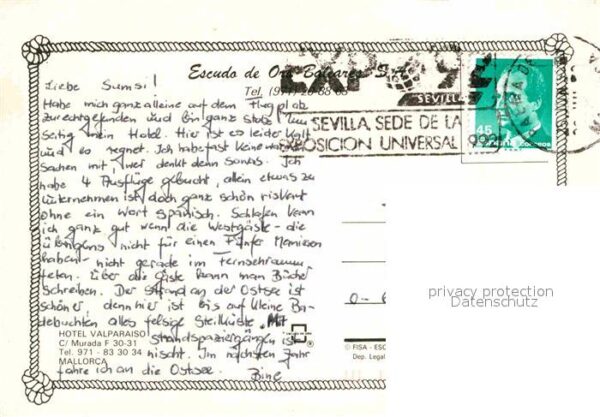 Escudo de Oro Baleares S.A.
Tel. (971) 20 88 63
Liebe Sumsi!
Habe mich ganz alleine auf dem Flugplatz
zurechtgefunden und bin ganz stolz
mein Hotel. Hier ist es leider kalt
und es regnet. Ich habe fast keine
sachen mit, wer denkt denn sowas. Ich
habe 4 Ausflüge gebucht, allein etwas zu
unternehmen ist doch ganz schön riskant
ohne ein Wort spanisch. Schlafen kann
ich ganz gut wenn die Westgäste - die
übrigens nicht für einen Fünfer Manieren
haben - nicht gerade im Fernsehraum
feten. Über die Gäste kann man Bücher
schreiben. Der Strand an der Ostsee ist
schöner, denn hier ist bis auf kleine Ba-
debuchten alles felsige Steilküste. Mit
Strandspaziergängen ist
nischt. Im nächsten Jahr
fahre ich an die Ostsee.
Bine
HOTEL VALPARAISO
C/ Murada F 30-31
Tel. 971 - 83 30 34
MALLORCA
EXPO 92
SEVILLA
SEVILLA, SEDE DE LA
EXPOSICION UNIVERSAL 1992
45
© FISA - ESC
Dep. Legal
privacy protection
Datenschutz